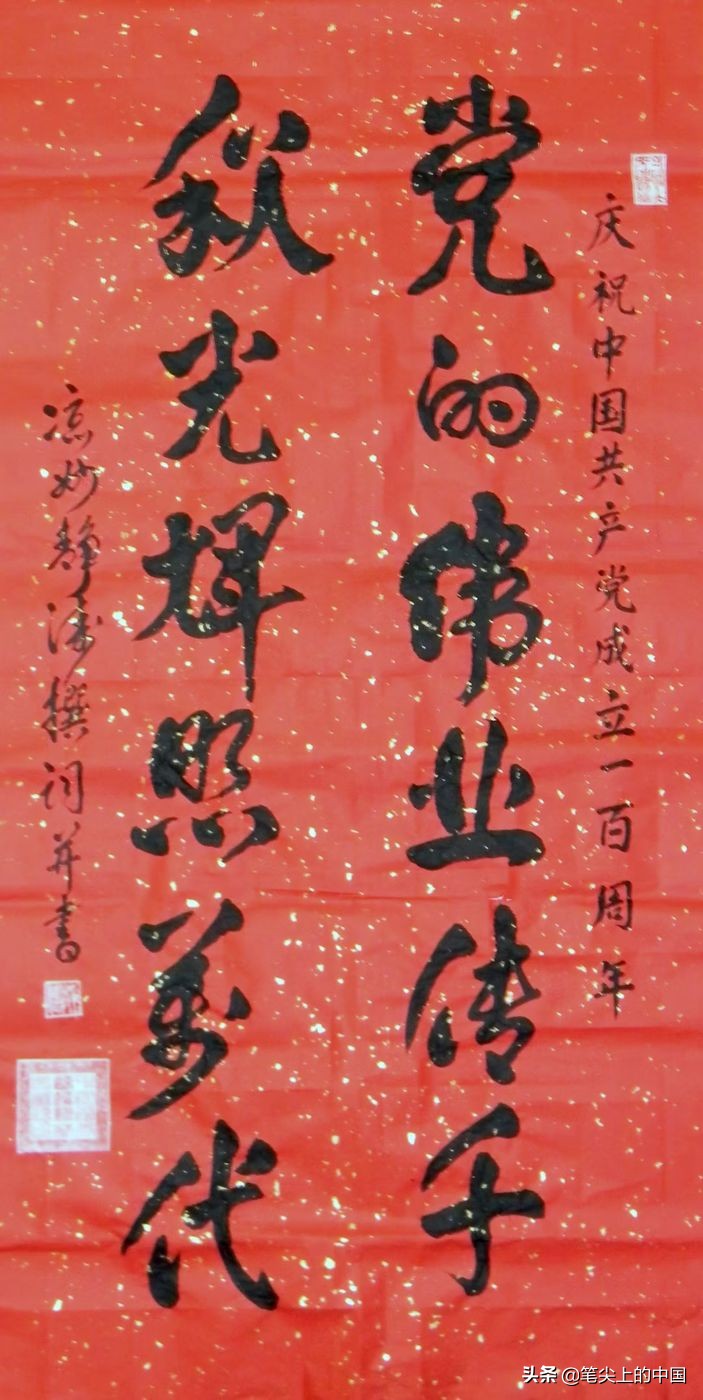 庆祝中国共产党成立一百周年
党的伟业传千
秋光辉照萬代
妙静撰词并書
头条 @笔尖上的中国